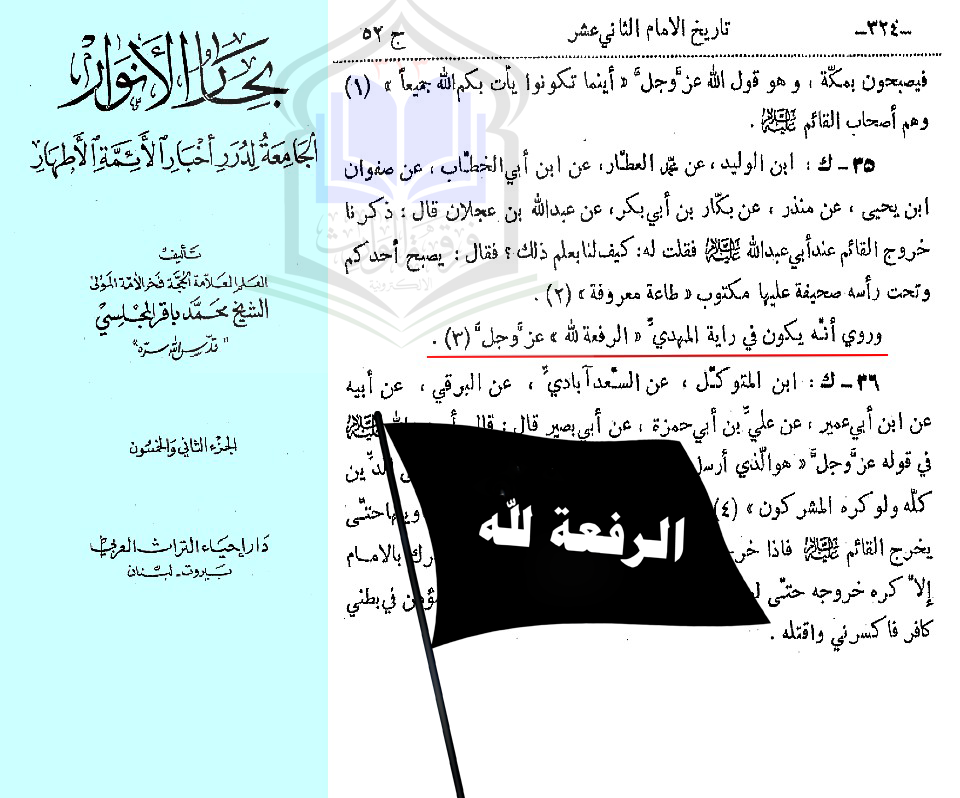 بحار الأنوار
الجامعة لدرر أخبار الأئمة الأطهار
تأليف
العلم العلامة الحجة فخر الأمة المولى
الشيخ محمد باقر المجلسي
"قدس الله سره"
الجزء الثاني والخمسون
دار إحياء التراث العربي
بيروت - لبنان
-٣٢٤- تاريخ الامام الثاني عشر ج ٥٢
فيصبحون بمكّة ، و هو قول الله عزَّوجلَّ « أينما تكونوا يأت بكم الله جميعاً » (١)
وهم أصحاب القائم عليه السلام .
٣٥ - ك : ابن الوليد ، عن محمد العطّار، عن ابن أبي الخطّاب ، عن صفوان
ابن يحيى ، عن منذر ، عن بكّار بن أبي بكر، عن عبدالله بن عجلان قال : ذكرنا
خروج القائم عند أبي عبدالله عليه السلام فقلت له: كيف لنا بعلم ذلك ؟ فقال : يصبح أحدكم
وتحت رأسه صحيفة عليها مكتوب « طاعة معروفة » (٢) .
وروي أنّه يكون في راية المهديِّ « الرفعة لله » عزَّوجلَّ (٣) .
٣٦ - ك : ابن المتوكّل ، عن السّعدآباديِّ ، عن البرقي ، عن أبيه
عن ابن أبي عمير ، عن عليِّ بن أبي حمزة ، عن أبي بصير قال : قال
في قوله عزَّوجلَّ « هو الّذي أرسل الدِّين
كلّه ولو كره المشركون » (٤) حتّى
يخرج القائم عليه السلام فاذا خرج بالامام
إلاّ كره خروجه حتّى في بطني
كافر فاكسرني واقتله .
الرفعة لله